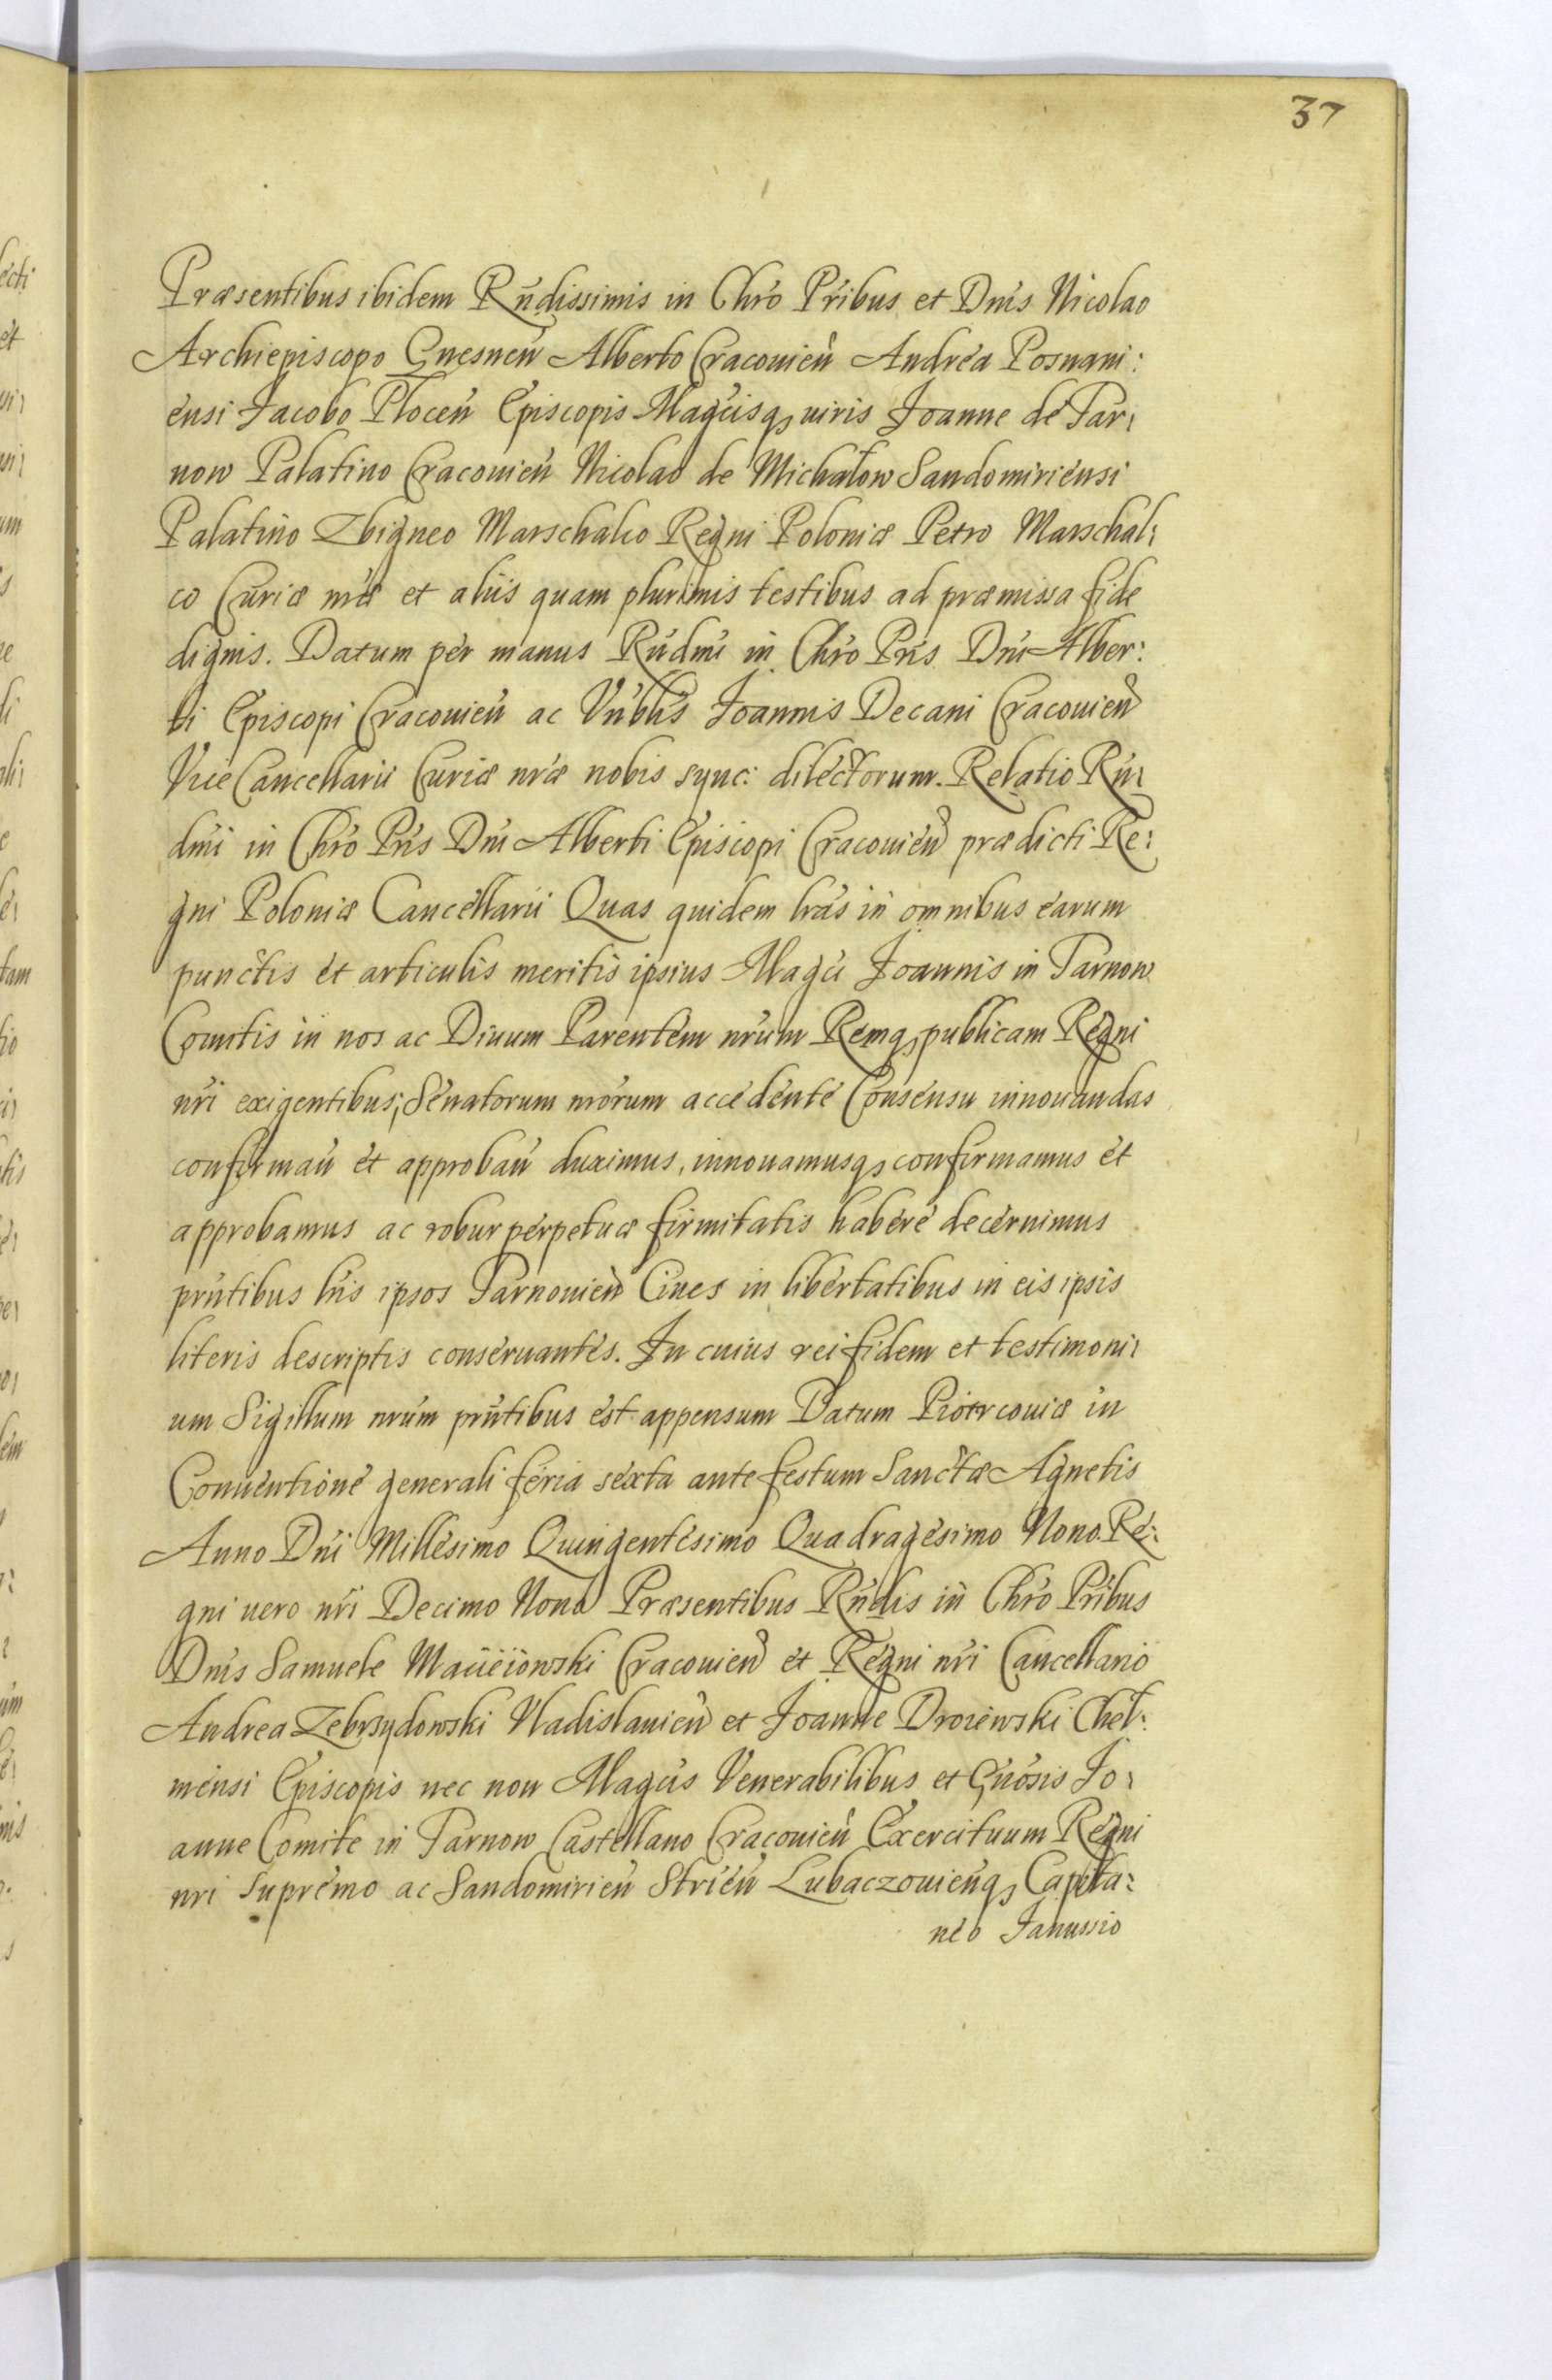 37
Præsentibus ibidem Rñdissimis in Chro Pribus et Dnis Nicolao
Archiepiscopo Gnesneñ Alberto Cracouieñ Andrea Posnani:
ensi Jacobo Ploceñ Episcopis Magcisq3 uiris Joanne de Tar:
now Palatino Cracouieñ Nicolao de Michałow Sandomiriensi
Palatino Zbigneo Marschalco Regni Poloniæ Petro Marschal:
co Curiæ nræ et aliis quam plurimis testibus ad præmissa fide
dignis. Datum per manus Rndmi in Chro Pris Dni Alber:
ti Episcopi Cracouieñ ac Vnblis Joannis Decani Cracouieñ
Vice Cancellarii Curiæ nræ nobis sync: dilectorum. Relatio Rn:
dmi in Chro Pris Dni Alberti Episcopi Cracouieñ prædicti Re:
gni Poloniæ Cancellarii Quas quidem lras in omnibus earum
punctis et articulis meritis ipsius Magci Joannis in Tarnow
Comitis in nos ac Diuum Parentem nrum Remq3 publicam Regni
nri exigentibus; Senatorum nrorum accedente Consensu innouandas
confirmañ et approbañ duximus, innouamusq3 confirmamus et
approbamus ac robur perpetuæ firmitatis habere decernimus
prñtibus lris ipsos Tarnouieñ Ciues in libertatibus in eis ipsis
literis descriptis conseruantes. In cuius rei fidem et testimoni:
um Sigillum nrum prñtibus est appensum Datum Piotrcouiæ in
Conuentione generali feria sexta ante festum Sanctæ Agnetis
Anno Dni Millesimo Quingentesimo Quadragesimo Nono. Re:
gni uero nri Decimo Nono Præsentibus Rndis in Chro Pribus
Dnis Samuele Macieiowski Cracouieñ et Regni nri Cancellario
Andrea Zebrsydowski Vladislauieñ et Joanne Droiewski Cheł:
mensi Episcopis nec non Magcis Venerabilibus et Gnosis Jo:
anne Comite in Tarnow Castellano Cracouieñ Exercituum Regni
nri supremo ac Sandomirieñ Strieñ Lubaczouieñq3 Capita:
neo Janussio